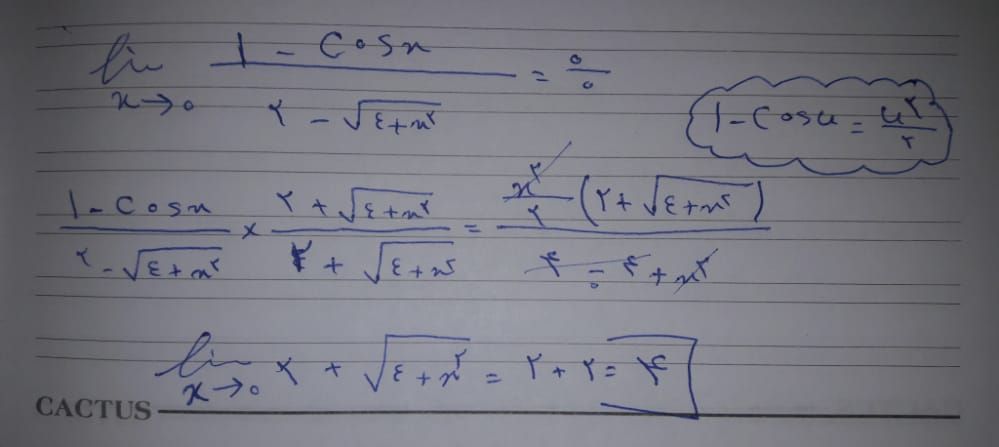 lim x→0 (1 - Cosx) / (۲ - √(٤+x²)) = ۰/۰
1 - Cosu = u²/۲
(1 - Cosx) / (۲ - √(٤+x²)) × (۲ + √(٤+x²)) / (۲ + √(٤+x²)) = (x²/۲ (۲ + √(٤+x²))) / (۴ - ۴ + x²)
lim x→0 ۲ + √(٤+x²) = ۲ + ۲ = ۴
CACTUS